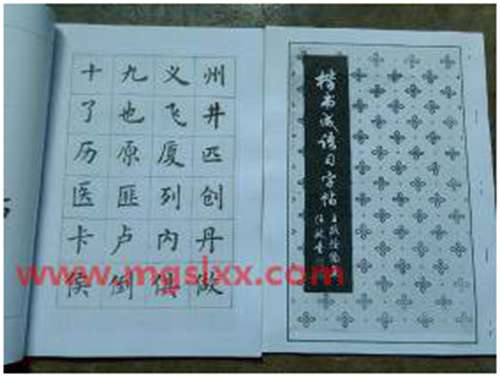 十 九 义 州
了 也 飞 井
历 原 厦 匹
医 匪 列 创
卡 卢 内 丹
倒 俱 做
www.mgslxx.com
楷书成语习字帖